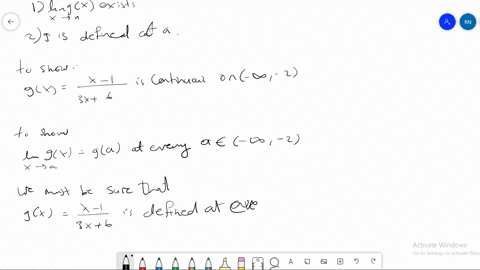 1) lim g(x) exists
x → a
2) g is defined at a.
to show:
g(x) = x-1 / 3x+6 is continuous on (-∞, -2)
to show
lim g(x) = g(a) at every a ∈ (-∞, -2)
x → a
We must be sure that
g(x) = x-1 / 3x+6 is defined at
RN
Activate Windows
Go to Settings to activate Windows